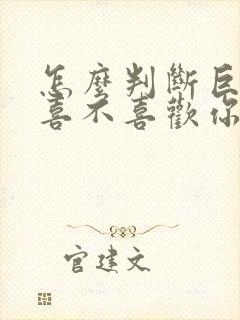 怎麼判斷巨
喜不喜歡你
官建文